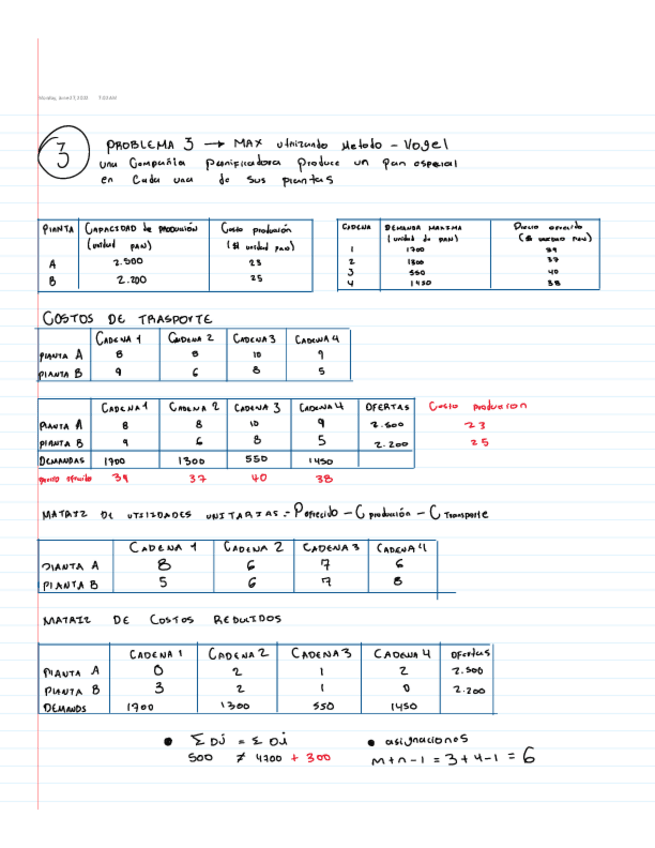 Monday, June 07, 2020 7:02 AM
3 PROBLEMA 3 → MAX utilizando Metodo - Vogel
una Compañia panificadora produce un pan especial
en Cada una de sus plantas
PLANTA CAPACIDAD de PRODUCCIÓN Costo producción
(unidad PAN) ($ unidad pan)
A 2.500 23
B 2.200 25
CADENA DEMANDA MAXIMA Precio ofrecido
(unidad de PAN) ($ unidad pan)
1 1700 39
2 1300 37
3 550 40
4 1450 38
COSTOS DE TRASPORTE
CADENA 1 CADENA 2 CADENA 3 CADENA 4
PLANTA A 8 8 10 9
PLANTA B 9 6 8 5
CADENA 1 CADENA 2 CADENA 3 CADENA 4 OFERTAS Costo produccion
PLANTA A 8 8 10 9 2.500 23
PLANTA B 9 6 8 5 2.200 25
DEMANDAS 1700 1300 550 1450
precio ofrecido 39 37 40 38
MATRIZ DE UTILIDADES UNITARIAS = P ofrecido - C producción - C Transporte
CADENA 1 CADENA 2 CADENA 3 CADENA 4
PLANTA A 8 6 7 6
PLANTA B 5 6 7 8
MATRIZ DE COSTOS REDUCIDOS
CADENA 1 CADENA 2 CADENA 3 CADENA 4 Ofertas
PLANTA A 0 2 1 2 2.500
PLANTA B 3 2 1 0 2.200
DEMANDS 1700 1300 550 1450
• Σ Dj = Σ Oi • asignaciones
500 ≠ 4700 + 300 m+n-1 = 3+4-1 = 6